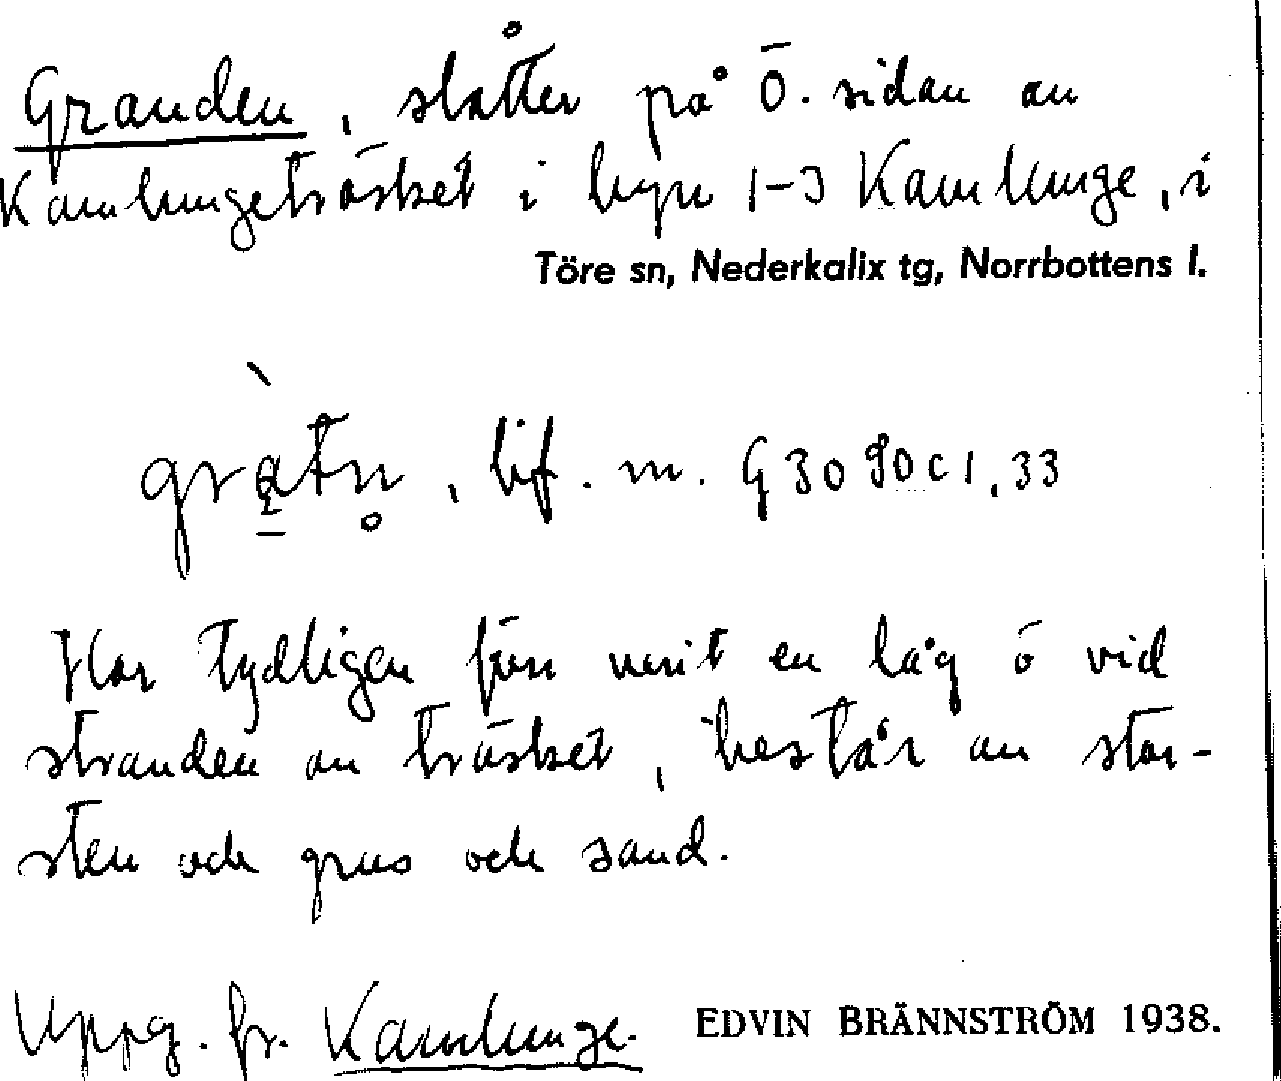 Granden, slåtter på Ö. sidan av
Kamlungeträsket i byn 1-3 Kamlunge, i
Töre sn, Nederkalix tg, Norrbottens l.
bf. m. G 30 90 c 1, 33
Har tydligen förr varit en låg ö vid
stranden av träsket, består av stor-
sten och grus och sand.
Uppg. fr. Kamlunge. EDVIN BRÄNNSTRÖM 1938.